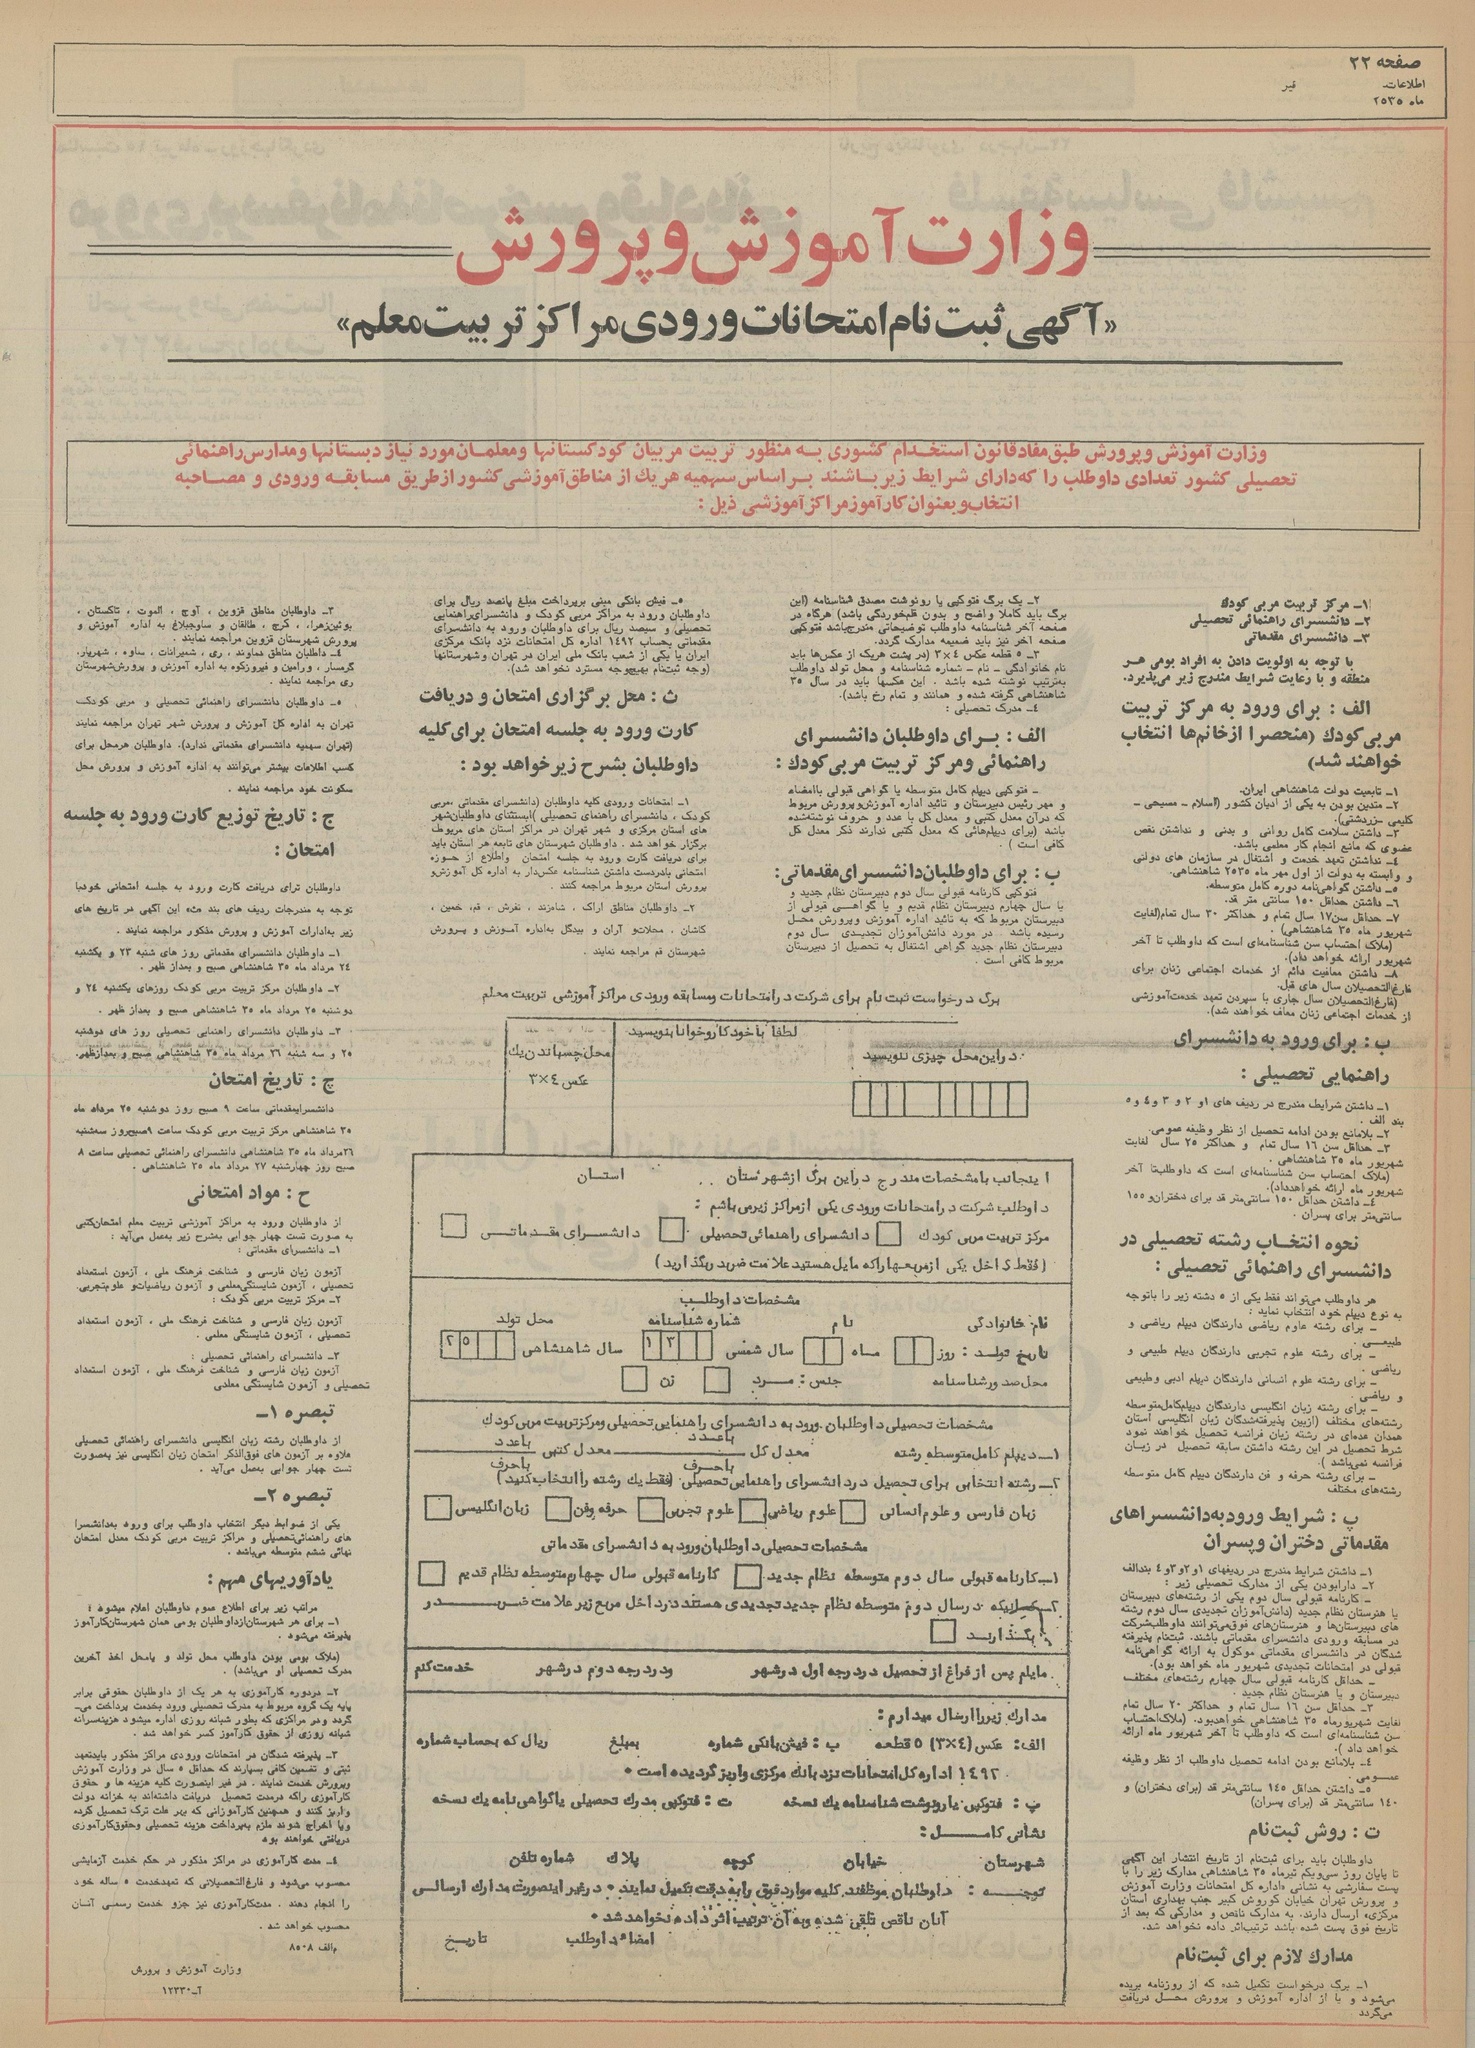 صفحه ۲۲
اطلاعات تیر
ماه ۲۵۳۵
وزارت آموزش و پرورش
«آگهی ثبت نام امتحانات ورودی مراکز تربیت معلم»
وزارت آموزش و پرورش طبق مفاد قانون استخدام کشوری به منظور تربیت مربیان کودکستانها و معلمان مورد نیاز دبستانها و مدارس راهنمائی
تحصیلی کشور تعدادی داوطلب را که دارای شرایط زیر باشند براساس سهمیه هریك از مناطق آموزشی کشور از طریق مسابقه ورودی و مصاحبه
انتخاب و بعنوان کارآموز مراکز آموزشی ذیل :
۱ــ مرکز تربیت مربی کودك
۲ــ دانشسرای راهنمائی تحصیلی
۳ــ دانشسرای مقدماتی
با توجه به اولویت دادن به افراد بومی هر
منطقه و با رعایت شرایط مندرج زیر می‌پذیرد.
الف : برای ورود به مرکز تربیت
مربی کودك (منحصرا از خانم‌ها انتخاب
خواهند شد)
۱ــ تابعیت دولت شاهنشاهی ایران.
۲ــ متدین بودن به یکی از ادیان کشور (اسلام ــ مسیحی ــ
کلیمی ــ زردشتی).
۳ــ داشتن سلامت کامل روانی و بدنی و نداشتن نقص
عضوی که مانع انجام کار معلمی باشد.
۴ــ نداشتن تعهد خدمت و اشتغال در سازمان های دولتی
و وابسته به دولت از اول مهر ماه ۲۵۳۵ شاهنشاهی.
۵ــ داشتن گواهی‌نامه دوره کامل متوسطه.
۶ــ داشتن حداقل ۱۵۰ سانتی متر قد.
۷ــ حداقل سن ۱۷ سال تمام و حداکثر ۳۰ سال تمام (لغایت
شهریور ماه ۳۵ شاهنشاهی) .
(ملاک احتساب سن شناسنامه‌ای است که داوطلب تا آخر
شهریور ارائه خواهد داد).
۸ــ داشتن معافیت دائم از خدمات اجتماعی زنان برای
فارغ‌التحصیلان سال های قبل.
(فارغ‌التحصیلان سال جاری با سپردن تعهد خدمت آموزشی
از خدمات اجتماعی زنان معاف خواهند شد).
ب : برای ورود به دانشسرای
راهنمایی تحصیلی :
۱ــ داشتن شرایط مندرج در ردیف های ۱ و ۲ و ۳ و ۴ و ۵
بند الف .
۲ــ بلامانع بودن ادامه تحصیل از نظر وظیفه عمومی.
۳ــ حداقل سن ۱۶ سال تمام و حداکثر ۲۵ سال لغایت
شهریور ماه ۳۵ شاهنشاهی .
(ملاک احتساب سن شناسنامه‌ای است که داوطلب تا آخر
شهریور ماه ارائه خواهد داد).
۴ــ داشتن حداقل ۱۵۰ سانتی‌متر قد برای دختران و ۱۵۵
سانتی‌متر برای پسران .
نحوه انتخاب رشته تحصیلی در
دانشسرای راهنمائی تحصیلی :
هر داوطلب می‌تواند فقط یکی از ۵ رشته زیر را باتوجه
به نوع دیپلم خود انتخاب نماید :
ــ برای رشته علوم ریاضی دارندگان دیپلم ریاضی و
طبیعی .
ــ برای رشته علوم تجربی دارندگان دیپلم طبیعی و
ریاضی .
ــ برای رشته علوم انسانی دارندگان دیپلم ادبی و طبیعی
و ریاضی .
ــ برای رشته زبان انگلیسی دارندگان دیپلم کامل متوسطه
رشته‌های مختلف (ازبین پذیرفته‌شدگان زبان انگلیسی استان
همدان عده‌ای در رشته زبان فرانسه تحصیل خواهند نمود
شرط تحصیل در این رشته داشتن سابقه تحصیل در زبان
فرانسه نمی‌باشد ).
ــ برای رشته حرفه و فن دارندگان دیپلم کامل متوسطه
رشته‌های مختلف
پ : شرایط ورود به دانشسراهای
مقدماتی دختران و پسران
۱ــ داشتن شرایط مندرج در ردیفهای ۱و۲و۳و۴ بندالف
۲ــ دارا بودن یکی از مدارک تحصیلی زیر :
ــ کارنامه قبولی سال دوم یکی از رشته‌های دبیرستان
یا هنرستان نظام جدید (دانش‌آموزان تجدیدی سال دوم رشته
های دبیرستان‌ها و هنرستان‌های فوق می‌توانند داوطلب شرکت
در مسابقه ورودی دانشسرای مقدماتی باشند. ثبت‌نام پذیرفته
شدگان در دانشسرای مقدماتی موکول به ارائه گواهی‌نامه
قبولی در امتحانات تجدیدی شهریور ماه خواهد بود).
ــ حداقل کارنامه قبولی سال چهارم رشته‌های مختلف
دبیرستان و یا هنرستان نظام جدید .
۳ــ حداقل سن ۱۶ سال تمام و حداکثر ۲۰ سال تمام
لغایت شهریورماه ۳۵ شاهنشاهی خواهدبود. (ملاک احتساب
سن شناسنامه‌ای است که داوطلب تا آخر شهریور ماه ارائه
خواهد داد ).
۴ــ بلامانع بودن ادامه تحصیل داوطلب از نظر وظیفه
عمومی .
۵ــ داشتن حداقل ۱۴۵ سانتی‌متر قد (برای دختران) و
۱۴۰ سانتی‌متر قد (برای پسران)
ت : روش ثبت‌نام
داوطلبان باید برای ثبت‌نام از تاریخ انتشار این آگهی
تا پایان روز سی‌ویکم تیرماه ۳۵ شاهنشاهی مدارک زیر را با
پست سفارشی به نشانی «اداره کل امتحانات وزارت آموزش
و پرورش تهران خیابان کوروش کبیر جنب بهداری استان
مرکزی» ارسال دارند. به مدارک ناقص و مدارکی که بعد از
تاریخ فوق پست شده باشد ترتیب‌اثر داده نخواهد شد.
مدارك لازم برای ثبت‌نام
۱ــ برگ درخواست تکمیل شده که از روزنامه بریده
می‌شود و یا از اداره آموزش و پرورش محل دریافت
می‌گردد .
۲ــ یک برگ فتوکپی یا رونوشت مصدق شناسنامه (این
برگ باید کاملا واضح و بدون قلم‌خوردگی باشد) هرگاه در
صفحه آخر شناسنامه داوطلب توضیحاتی مندرج باشد فتوکپی
صفحه آخر نیز باید ضمیمه مدارک گردد.
۳ــ ۵ قطعه عکس ۴×۳ (در پشت هریک از عکس‌ها باید
نام خانوادگی ــ نام ــ شماره شناسنامه و محل تولد داوطلب
به‌ترتیب نوشته شده باشد . این عکسها باید در سال ۳۵
شاهنشاهی گرفته شده و همانند و تمام رخ باشد).
۴ــ مدرک تحصیلی :
الف : برای داوطلبان دانشسرای
راهنمائی و مرکز تربیت مربی کودك :
ــ فتوکپی دیپلم کامل متوسطه یا گواهی قبولی باامضاء
و مهر رئیس دبیرستان و تائید اداره آموزش و پرورش مربوط
که درآن معدل کتبی و معدل کل با عدد و حروف نوشته‌شده
باشد (برای دیپلم‌هائی که معدل کتبی ندارند ذکر معدل کل
کافی است ) .
ب : برای داوطلبان دانشسرای مقدماتی:
فتوکپی کارنامه قبولی سال دوم دبیرستان نظام جدید و
یا سال چهارم دبیرستان نظام قدیم و یا گواهی قبولی از
دبیرستان مربوط که به تائید اداره آموزش و پرورش محل
رسیده باشد . در مورد دانش‌آموزان تجدیدی سال دوم
دبیرستان نظام جدید گواهی اشتغال به تحصیل از دبیرستان
مربوط کافی است .
۵ــ فیش بانکی مبنی برپرداخت مبلغ پانصد ریال برای
داوطلبان ورود به مراکز مربی کودک و دانشسرای‌راهنمایی
تحصیلی و سیصد ریال برای داوطلبان ورود به دانشسرای
مقدماتی بحساب ۱۴۹۲ اداره کل امتحانات نزد بانک مرکزی
ایران یا یکی از شعب بانک ملی ایران در تهران و شهرستانها
(وجه ثبت‌نام بهیچ‌وجه مسترد نخواهد شد).
ث : محل برگزاری امتحان و دریافت
کارت ورود به جلسه امتحان برای کلیه
داوطلبان بشرح زیر خواهد بود :
۱ــ امتحانات ورودی کلیه داوطلبان (دانشسرای مقدماتی ،مربی
کودک ، دانشسرای راهنمای تحصیلی )باستثنای داوطلبان‌شهر
های استان مرکزی و شهر تهران در مراکز استان های مربوط
برگزار خواهد شد . داوطلبان شهرستان های تابعه هر استان باید
برای دریافت کارت ورود به جلسه امتحان واطلاع از حوزه
امتحانی بادردست داشتن شناسنامه عکس‌دار به اداره کل آموزش‌و
پرورش استان مربوط مراجعه کنند .
۲ــ داوطلبان مناطق اراک ، شازند ، تفرش ، قم، خمین ،
کاشان ، محلات‌و آران و بیدگل به‌اداره آموزش و پرورش
شهرستان قم مراجعه نمایند .
۳ــ داوطلبان مناطق قزوین ، آوج ، الموت ، تاکستان ،
بوئین‌زهرا، ، کرج ، طالقان و ساوجبلاغ به اداره آموزش و
پرورش شهرستان قزوین مراجعه نمایند .
۴ــ داطلبان مناطق دماوند ، ری ، شمیرانات ، ساوه ، شهریار،
گرمسار ، ورامین و فیروزکوه به اداره آموزش و پرورش‌شهرستان
ری مراجعه نمایند .
۵ــ داوطلبان دانشسرای راهنمائی تحصیلی و مربی کودک
تهران به اداره کل آموزش و پرورش شهر تهران مراجعه نمایند
(تهران سهمیه دانشسرای مقدماتی ندارد). داوطلبان هرمحل برای
کسب اطلاعات بیشتر می‌توانند به اداره آموزش و پرورش محل
سکونت خود مراجعه نمایند .
ج : تاریخ توزیع کارت ورود به جلسه
امتحان :
داوطلبان برای دریافت کارت ورود به جلسه امتحانی خودبا
توجه به مندرجات ردیف های بند «ث» این آگهی در تاریخ های
زیر به‌ادارات آموزش و پرورش مذکور مراجعه نمایند .
۱ــ داوطلبان دانشسرای مقدماتی روز های شنبه ۲۳ و یکشنبه
۲۴ مرداد ماه ۳۵ شاهنشاهی صبح و بعداز ظهر .
۲ــ داوطلبان مرکز تربیت مربی کودک روزهای یکشنبه ۲۴ و
دوشنبه ۲۵ مرداد ماه ۳۵ شاهنشاهی صبح و بعداز ظهر .
۳ــ داوطلبان دانشسرای راهنمایی تحصیلی روز های دوشنبه
۲۵ و سه شنبه ۲۶ مرداد ماه ۳۵ شاهنشاهی صبح و بعدازظهر.
چ : تاریخ امتحان
دانشسرایمقدماتی ساعت ۹ صبح روز دوشنبه ۲۵ مرداد ماه
۳۵ شاهنشاهی مرکز تربیت مربی کودک ساعت ۹صبح‌روز سه‌شنبه
۲۶مرداد ماه ۳۵ شاهنشاهی دانشسرای راهنمائی تحصیلی ساعت ۸
صبح روز چهارشنبه ۲۷ مرداد ماه ۳۵ شاهنشاهی .
ح : مواد امتحانی
از داوطلبان ورود به مراکز آموزشی تربیت معلم امتحان‌کتبی
به صورت تست چهار جوابی به‌شرح زیر به‌عمل می‌آید :
۱ــ دانشسرای مقدماتی :
آزمون زبان فارسی و شناخت فرهنگ ملی ، آزمون استعداد
تحصیلی ، آزمون شایستگی‌معلمی و آزمون ریاضیات‌و علوم‌تجربی.
۲ــ مرکز تربیت مربی کودک :
آزمون زبان فارسی و شناخت فرهنگ ملی ، آزمون استعداد
تحصیلی ، آزمون شایستگی معلمی .
۳ــ دانشسرای راهنمائی تحصیلی :
آزمون زبان فارسی و شناخت فرهنگ ملی ، آزمون استعداد
تحصیلی و آزمون شایستگی معلمی
تبصره ۱ــ
از داوطلبان رشته زبان انگلیسی دانشسرای راهنمائی تحصیلی
علاوه بر آزمون های فوق‌الذکر امتحان زبان انگلیسی نیز به‌صورت
تست چهار جوابی به‌عمل می‌آید .
تبصره ۲ــ
یکی از ضوابط دیگر انتخاب داوطلب برای ورود به‌دانشسرا
های راهنمائی‌تحصیلی و مراکز تربیت مربی کودک معدل امتحان
نهائی ششم متوسطه می‌باشد .
یادآوریهای مهم :
مراتب زیر برای اطلاع عموم داوطلبان اعلام میشود :
۱ــ برای هر شهرستان‌ازداوطلبان بومی همان شهرستان‌کارآموز
پذیرفته می‌شود .
(ملاک بومی بودن داوطلب محل تولد و یامحل اخذ آخرین
مدرک تحصیلی او می‌باشد).
۲ــ دردوره کارآموزی به هر یک از داوطلبان حقوقی برابر
پایه یک گروه مربوط به مدرک تحصیلی ورود بخدمت پرداخت می‌ــ
گردد ودر مراکزی که بطور شبانه روزی اداره میشود هزینه‌سرانه
شبانه روزی از حقوق کارآموز کسر خواهد شد .
۳ــ پذیرفته شدگان در امتحانات ورودی مراکز مذکور بایدتعهد
ثبتی و تضمین کافی بسپارند که حداقل ۵ سال در وزارت آموزش
وپرورش خدمت نمایند . در غیر اینصورت کلیه هزینه ها و حقوق
کارآموزی راکه درمدت تحصیل دریافت داشته‌اند به خزانه دولت
واریز کنند و همچنین کارآموزانی که بهر علت ترک تحصیل کرده
ویا اخراج شوند ملزم به‌پرداخت هزینه تحصیلی وحقوق‌کارآموزی
دریافتی خواهند بود
۴ــ مدت کارآموزی در مراکز مذکور در حکم خدمت آزمایشی
محسوب می‌شود و فارغ‌التحصیلانی که تعهدخدمت ۵ ساله خود
را انجام دهند . مدت‌کارآموزی نیز جزو خدمت رسمی آنان
محسوب خواهد شد .
م‌الف ۸۵۰۸
وزارت آموزش و پرورش
آــ۱۲۳۳۰
برگ درخواست ثبت نام برای شرکت در امتحانات ومسابقه ورودی مراکز آموزشی تربیت معلم
لطفا باخودکار و خوانا بنویسید
محل چسباندن یك
عکس ۴×۳
در این محل چیزی ننویسید
اینجانب با مشخصات مندرج دراین برگ از شهرستان .. استان
داوطلب شرکت در امتحانات ورودی یکی ازمراکز زیرمی باشم :
مرکز تربیت مربی کودك دانشسرای راهنمائی تحصیلی دانشسرای مقدماتی
(فقط داخل یکی از مربعها راکه مایل هستید علامت ضربد ربگذارید )
مشخصات داوطلب
نام خانوادگی نام شماره شناسنامه محل تولد
تاریخ تولد : روز ماه سال شمسی ۱۳ سال شاهنشاهی ۲۵
محل صدور شناسنامه جنس : مرد زن
مشخصات تحصیلی داوطلبان ورود به دانشسرای راهنمایی تحصیلی ومرکز تربیت مربی کودك
۱ــ دیپلم کامل متوسطه رشته معدل کل باعدد باحرف معدل کتبی باعدد باحرف
۲ــ رشته انتخابی برای تحصیل در دانشسرای راهنمایی تحصیلی (فقط یك رشته را انتخاب کنید)
زبان فارسی و علوم انسانی علوم ریاضی علوم تجربی حرفه وفن زبان انگلیسی
مشخصات تحصیلی داوطلبان ورود به دانشسرای مقدماتی
۱ــ کارنامه قبولی سال دوم متوسطه نظام جدید کارنامه قبولی سال چهارم متوسطه نظام قدیم
۲ــ کسانیکه در سال دوم متوسطه نظام جدید تجدیدی هستند در داخل مربع زیر علامت ضربدر
بگذارند
مایلم پس از فراغ از تحصیل در درجه اول درشهر ودر درجه دوم درشهر خدمت کنم
مدارك زیر را ارسال میدارم :
الف: عکس (۴×۳) ۵ قطعه ب : فیش بانکی شماره بمبلغ ریال که بحساب شماره
۱۴۹۲ اداره کل امتحانات نزد بانك مرکزی واریز گردیده است ۰
پ : فتوکپی یا رونوشت شناسنامه یك نسخه ت : فتوکپی مدرك تحصیلی یاگواهی نامه یك نسخه
نشانی کامل :
شهرستان خیابان کوچه پلاك شماره تلفن
توجه : داوطلبان موظفند کلیه موارد فوق را به دقت تکمیل نمایند ۰ درغیر اینصورت مدارك ارسالی
آنان ناقص تلقی شده و به آن ترتیب اثر داده نخواهد شد ۰
امضاء داوطلب تاریخ